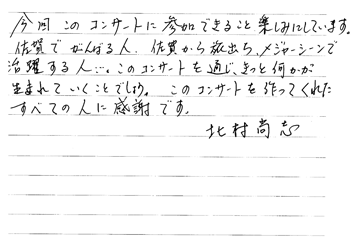 今回このコンサートに参加できること楽しみにしています。
佐賀でがんばる人、佐賀から旅出ち、メジャーシーンで
活躍する人…。このコンサートを通じ、きっと何かが
生まれていくことでしょう。このコンサートを作ってくれた
すべての人に感謝です。
北村尚志